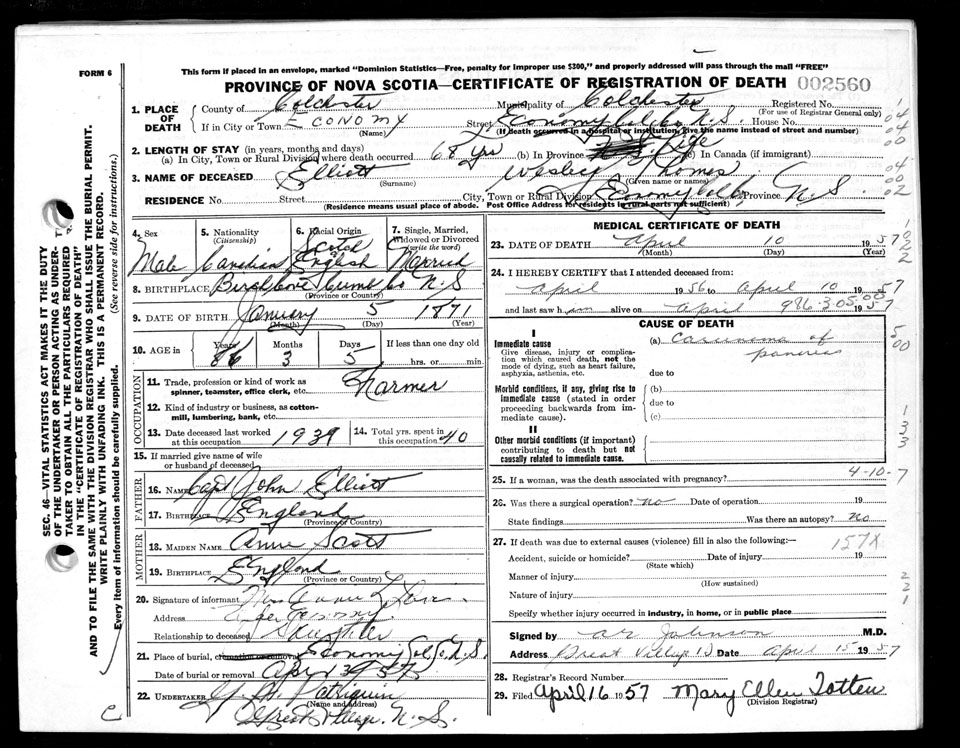 FORM 6
This form if placed in an envelope, marked "Dominion Statistics—Free, penalty for improper use $300," and properly addressed will pass through the mail "FREE"
PROVINCE OF NOVA SCOTIA—CERTIFICATE OF REGISTRATION OF DEATH 002560
SEC. 46—VITAL STATISTICS ACT MAKES IT THE DUTY
OF THE UNDERTAKER OR PERSON ACTING AS UNDER-
TAKER TO OBTAIN ALL THE PARTICULARS REQUIRED
IN THE "CERTIFICATE OF REGISTRATION OF DEATH"
AND TO FILE THE SAME WITH THE DIVISION REGISTRAR WHO SHALL ISSUE THE BURIAL PERMIT.
WRITE PLAINLY WITH UNFADING INK. THIS IS A PERMANENT RECORD.
Every item of information should be carefully supplied. (See reverse side for instructions.)
1. PLACE OF DEATH
County of Colchester Municipality of Colchester Registered No.
(For use of Registrar General only)
If in City or Town Economy Street Economy N.S. House No.
(Name) (If death occurred in a hospital or institution, give the name instead of street and number)
2. LENGTH OF STAY (in years, months and days)
(a) In City, Town or Rural Division where death occurred 68 yrs (b) In Province Life (c) In Canada (if immigrant)
3. NAME OF DECEASED Elliott Wesley Thomas
(Surname) (Given name or names)
RESIDENCE No. Street City, Town or Rural Division Economy Province N.S.
(Residence means usual place of abode. Post Office Address for residents in rural parts not sufficient)
4. Sex Male
5. Nationality (Citizenship) Canadian
6. Racial Origin Scotch English
7. Single, Married, Widowed or Divorced (write the word) Married
8. BIRTHPLACE Cumb Co N.S
(Province or Country)
9. DATE OF BIRTH January 5 1871
(Month) (Day) (Year)
10. AGE in Years 86 Months 3 Days 5 If less than one day old
hrs. or min.
OCCUPATION
11. Trade, profession or kind of work as
spinner, teamster, office clerk, etc. Farmer
12. Kind of industry or business, as cotton-
mill, lumbering, bank, etc.
13. Date deceased last worked
at this occupation 1939
14. Total yrs. spent in
this occupation 40
15. If married give name of wife
or husband of deceased
FATHER
16. NAME Capt John Elliott
17. BIRTHPLACE England
(Province or Country)
MOTHER
18. MAIDEN NAME Annie Scott
19. BIRTHPLACE England
(Province or Country)
20. Signature of informant Mrs
Address
Relationship to deceased
21. Place of burial, cremation or removal Economy Col. Co. N.S.
Date of burial or removal 1957
22. UNDERTAKER Patriquin
(Name and address)
Great Village, N.S.
MEDICAL CERTIFICATE OF DEATH
23. DATE OF DEATH April 10 1957
(Month) (Day) (Year)
24. I HEREBY CERTIFY that I attended deceased from:
April 1956 to April 10 1957
and last saw him alive on April 9 1957
986-3-05-00
CAUSE OF DEATH
I
Immediate cause
Give disease, injury or complica-
tion which caused death, not the
mode of dying, such as heart failure,
asphyxia, asthenia, etc.
(a) Carcinoma of
pancreas
due to
Morbid conditions, if any, giving rise to
immediate cause (stated in order
proceeding backwards from im-
mediate cause).
(b)
due to
(c)
II
Other morbid conditions (if important)
contributing to death but not
causally related to immediate cause.
4-10-7
25. If a woman, was the death associated with pregnancy?
26. Was there a surgical operation? no Date of operation 19
State findings Was there an autopsy? no
27. If death was due to external causes (violence) fill in also the following:—
157X
Accident, suicide or homicide? Date of injury 19
(State which)
Manner of injury
(How sustained)
Nature of injury
Specify whether injury occurred in industry, in home, or in public place
Signed by Johnson M.D.
Address Great Village Date April 15 1957
28. Registrar's Record Number
29. Filed April 16 1957 Mary Ellen Totten
(Division Registrar)